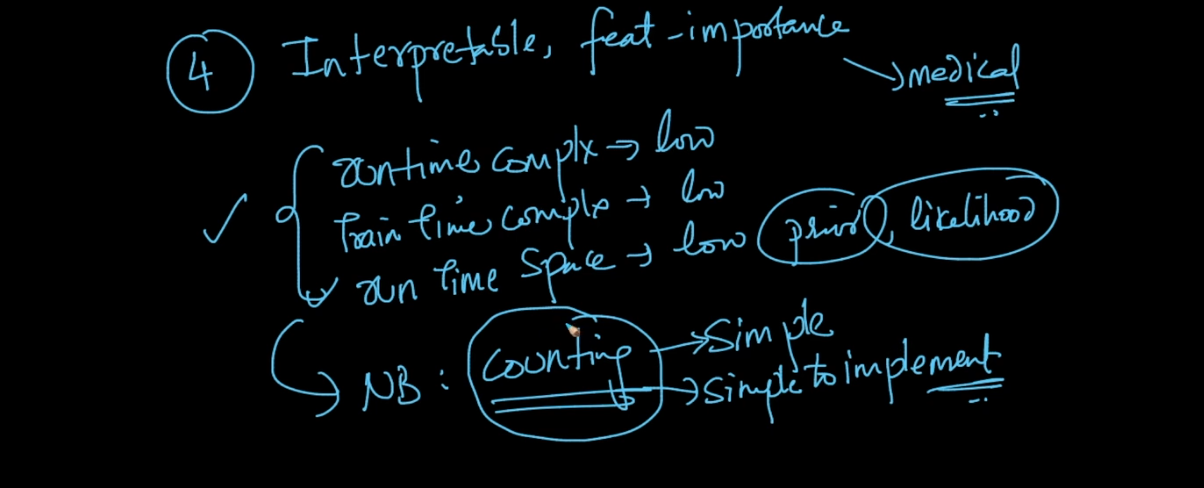 4 Interpretable, feat-importance
→ medical
runtime complx → low
Train time complx → low
run time space → low prior, likelihood
NB: counting → Simple
→ simple to implement